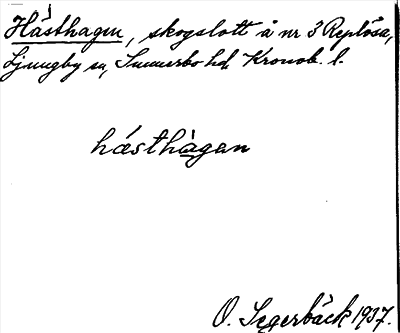 Hästhagen, skogslott å nr 3 Replösa,
Ljungby sn, Sunnerbo hd. Kronob. l.
hásthàgan
O. Segerbäck 1937.